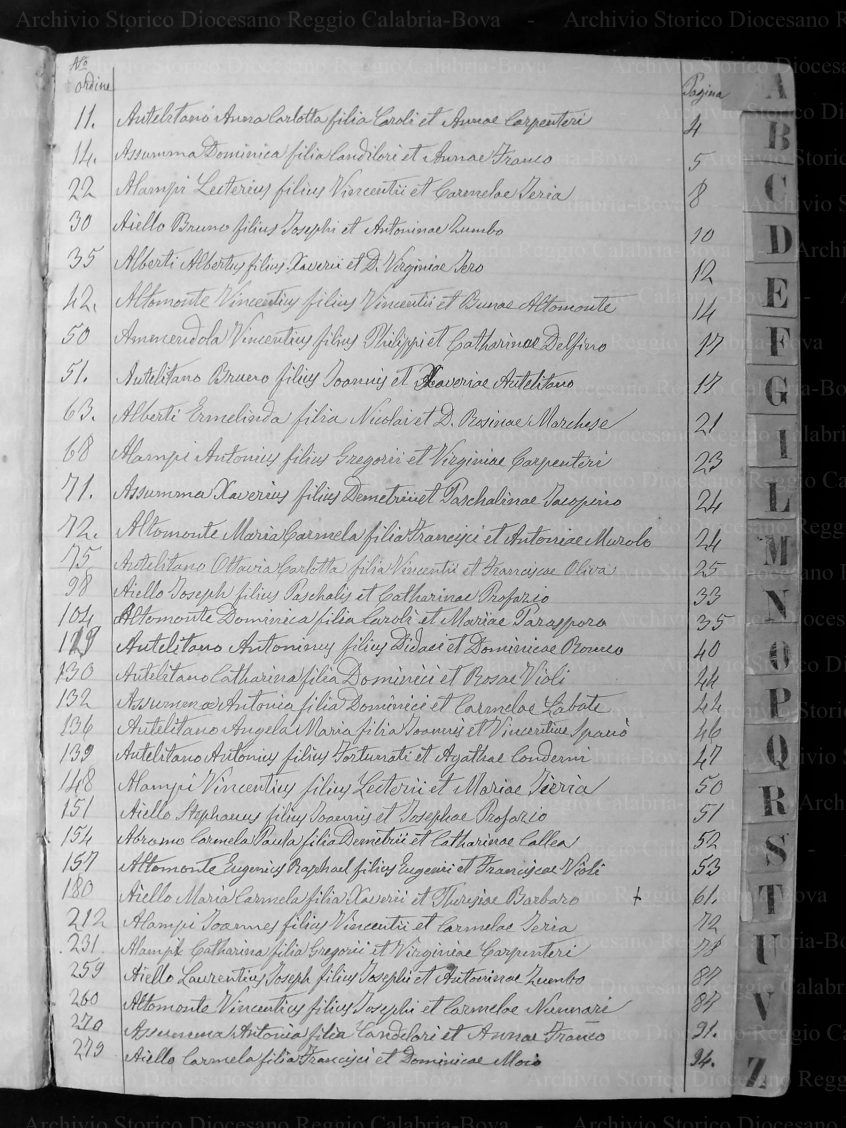 Archivio Storico Diocesano Reggio Calabria-Bova - Archivio Storico Diocesano
No ordine Pagina
11. Autelitano Anna Carlotta filia Caroli et Annae Carpenteri 4
14. Assumma Dominica filia Candilori et Annae Franco 5
22 Alampi Lecterius filius Vincentii et Carmelae Ieria 8
30 Aiello Bruno filius Josephi et Antoninae Zumbo 10
35 Alberti Albertus filius Xaverii et D. Virginiae Iero 12
42. Altomonte Vincentius filius Vincentii et Bunae Altomonte 14
50 Amenendola Vincentius filius Philippi et Catharinae Delfino 17
51. Autelitano Bruno filius Joannis et Xaveriae Autelitano 17
63. Alberti Ermelinda filia Nicolai et D. Rosinae Marchese 21
68 Alampi Antonius filius Gregorii et Virginiae Carpenteri 23
71. Assumma Xaverius filius Demetrii et Paschalinae Iacopino 24
72. Altomonte Maria Carmela filia Francisci et Antoniae Murolo 24
75 Autelitano Ottavia Carlotta filia Vincentii et Franciscae Oliva 25
98 Aiello Joseph filius Paschalis et Catharinae Profazio 33
104 Altomonte Dominica filia Caroli et Mariae Paraspora 35
119 Autelitano Antoninus filius Didaci et Dominicae Romeo 40
130 Autelitano Catharina filia Dominici et Rosae Violi 44
132 Assumma Antonia filia Dominici et Carmelae Labate 44
136 Autelitano Angela Maria filia Joannis et Vincentiae Spanò 46
139 Autelitano Antonius filius Fortunati et Agathae Condemi 47
148 Alampi Vincentius filius Lecterii et Mariae Ieria 50
151 Aiello Stephanus filius Joannis et Josephae Profazio 51
154 Abramo Carmela Paula filia Demetrii et Catharinae Callea 52
157 Altomonte Eugenius Raphael filius Eugenii et Franciscae Violi 53
180 Aiello Maria Carmela filia Xaverii et Theresiae Barbaro + 61.
212 Alampi Joannes filius Vincentii et Carmelae Ieria 72
231. Alampi Catharina filia Gregorii et Virginiae Carpenteri 78
259 Aiello Laurentius Joseph filius Josephi et Antoninae Zumbo 87
260 Altomonte Vincentius filius Josephi et Carmelae Nunnari 87
270 Assumma Antonia filia Candilori et Annae Franco 91.
279 Aiello Carmela filia Francisci et Dominicae Moio 94.
A
B
C
D
E
F
G
I
L
M
N
O
P
Q
R
S
T
U
V
Z